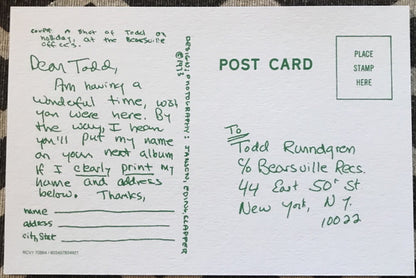 cover: A shot of Todd on
holiday, at the Bearsville
offices.
Dear Todd,
Am having a
wonderful time, wish
you were here. By
the way I hear
you'll put my name
on your next album
if I clearly print my
name and address
below. Thanks,
name
address
city, state
DESIGN; PHOTOGRAPHY;
©1973
POST CARD
PLACE
STAMP
HERE
To
Todd Rundgren
c/o Bearsville Recs.
44 East 50th St
New York, N.Y.
10022